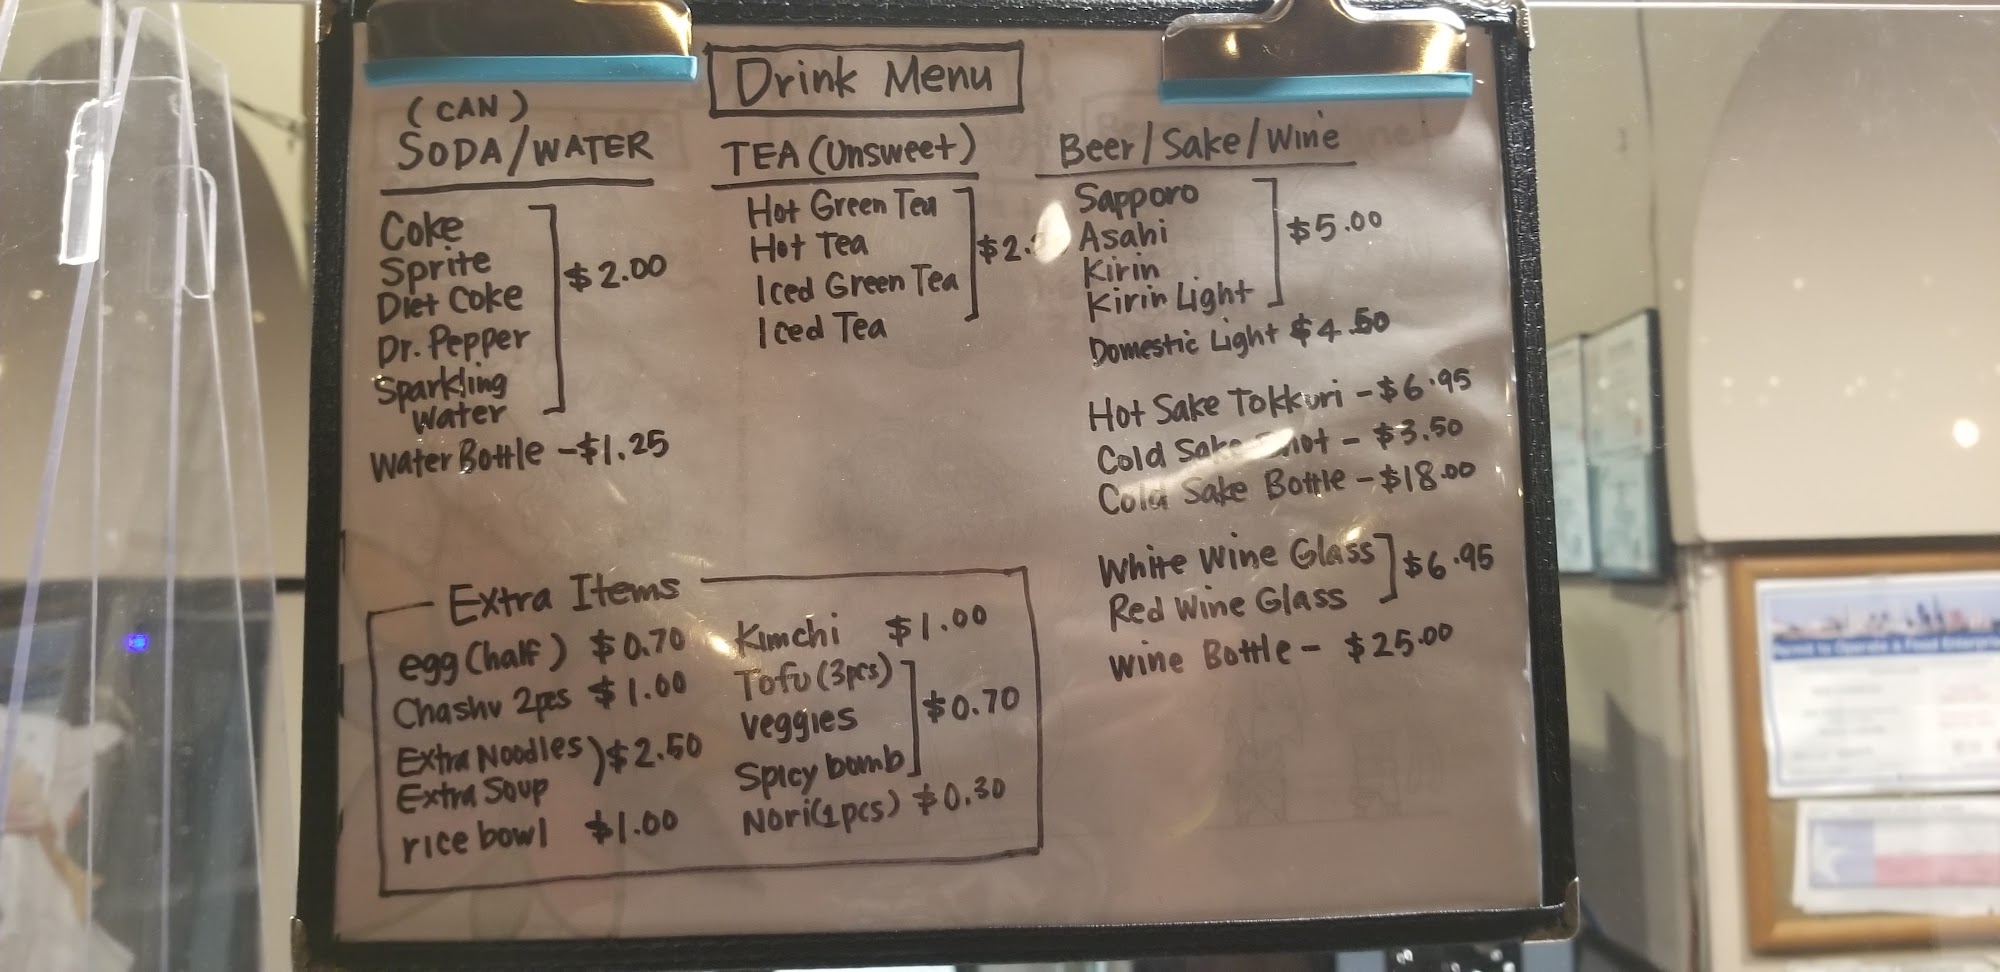 Drink Menu
(CAN)
SODA/WATER
Coke
Sprite
Diet Coke
Dr. Pepper
Sparkling
Water
$2.00
Water Bottle -$1.25
TEA (Unsweet)
Hot Green Tea
Hot Tea
Iced Green Tea
Iced Tea
$2.
Beer/Sake/Wine
Sapporo
Asahi
Kirin
Kirin Light
$5.00
Domestic Light $4.50
Hot Sake Tokkuri -$6.95
Cold Sake - $3.50
Cold Sake Bottle -$18.00
White Wine Glass
Red Wine Glass
$6.95
Wine Bottle - $25.00
Extra Items
egg (half) $0.70
Chashu 2pcs $1.00
Extra Noodles
Extra Soup
$2.50
rice bowl $1.00
Kimchi $1.00
Tofu (3pcs)
Veggies
Spicy bomb
$0.70
Nori (1pcs) $0.30
Permit to Operate a Food